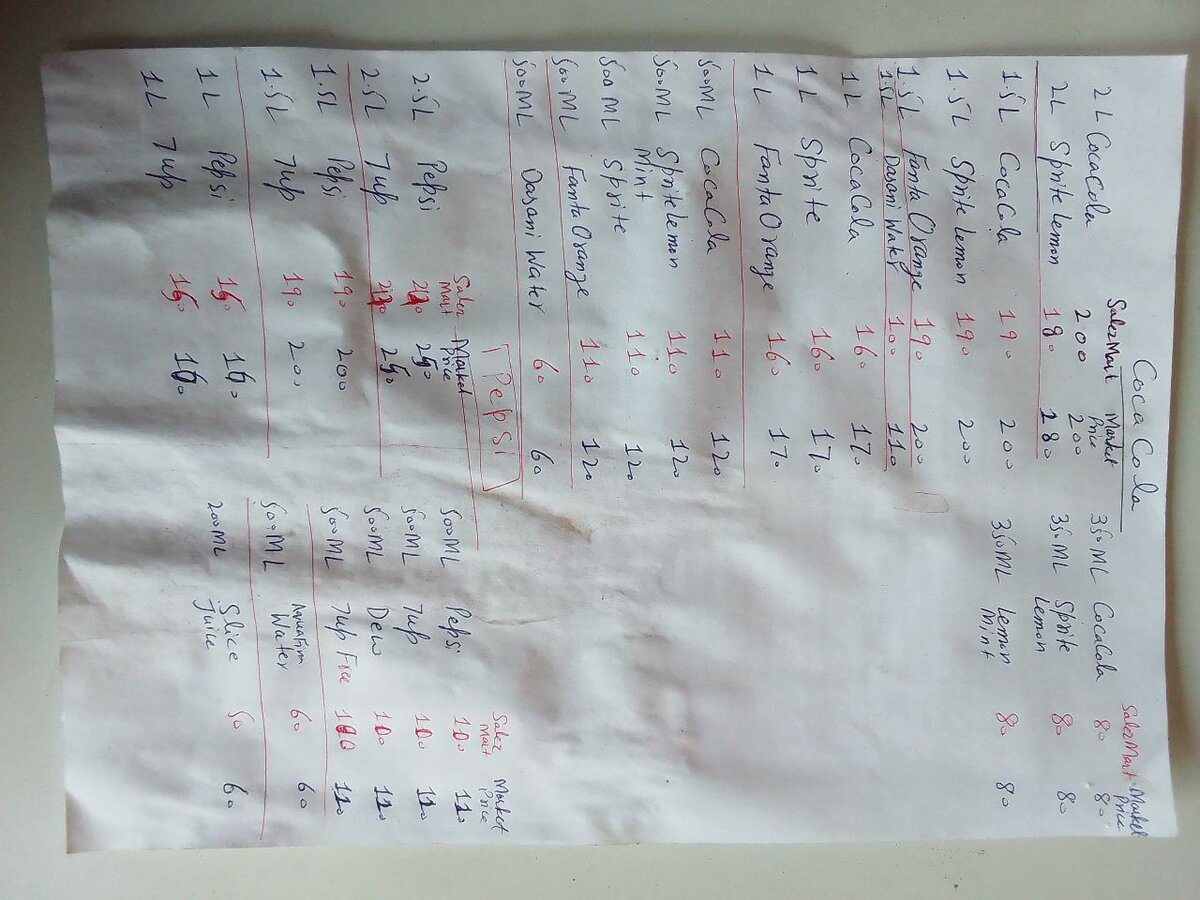 Coca Cola
Salez Mart Market Price
2L CocaCola 200 200
2L Sprite Lemon 180 180
1.5L CocaCola 190 200
1.5L Sprite Lemon 190 200
1.5L Fanta Orange 190 200
1.5L Dasani Water 100 110
1L CocaCola 160 170
1L Sprite 160 170
1L Fanta Orange 160 170
500ML CocaCola 110 120
500ML Sprite Lemon Mint 110 120
500ML Sprite 110 120
500ML Fanta Orange 110 120
500ML Dasani Water 60 60
Salez Mart Market Price
350ML CocaCola 80 80
350ML Sprite Lemon 80 80
350ML Lemon Mint 80 80
Pepsi
Salez Mart Market Price
2.5L Pepsi 250
2.5L 7up 250
1.5L Pepsi 190 200
1.5L 7up 190 200
1L Pepsi 150 160
1L 7up 150 160
Salez Mart Market Price
500ML Pepsi 100 110
500ML 7up 100 110
500ML Dew 100 110
500ML 7up Free 100 110
500ML Water 60 60
200ML Slice Juice 50 60